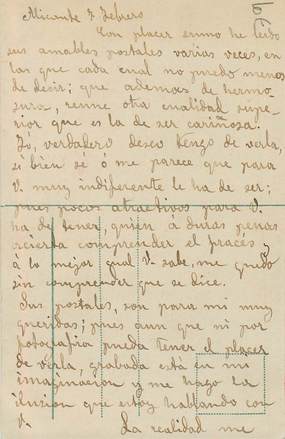 Alicante 7 Febrero
Con placer sumo he leido
sus amables postales varias veces, en
las que cada cual no puedo menos
de decir; que ademas de hermo-
sura, reune otra cualidad supe-
rior que es la de ser cariñosa.
Si, verdadero deseo tengo de verla,
si bien se ó me parece que para
V. muy indiferente le ha de ser;
pues pocos atractivos para V.
ha de tener, quien á duras penas
acierta comprender el francés y
á lo mejor qual V. sabe, me quedo
sin comprender que se dice.
Sus postales, son para mi muy
queridas; pues aun que ni por
fotografia pueda tener el placer
de verla, grabada está en mi
imaginacion y me hago la
ilusion que estoy hablando con
V.
La realidad me